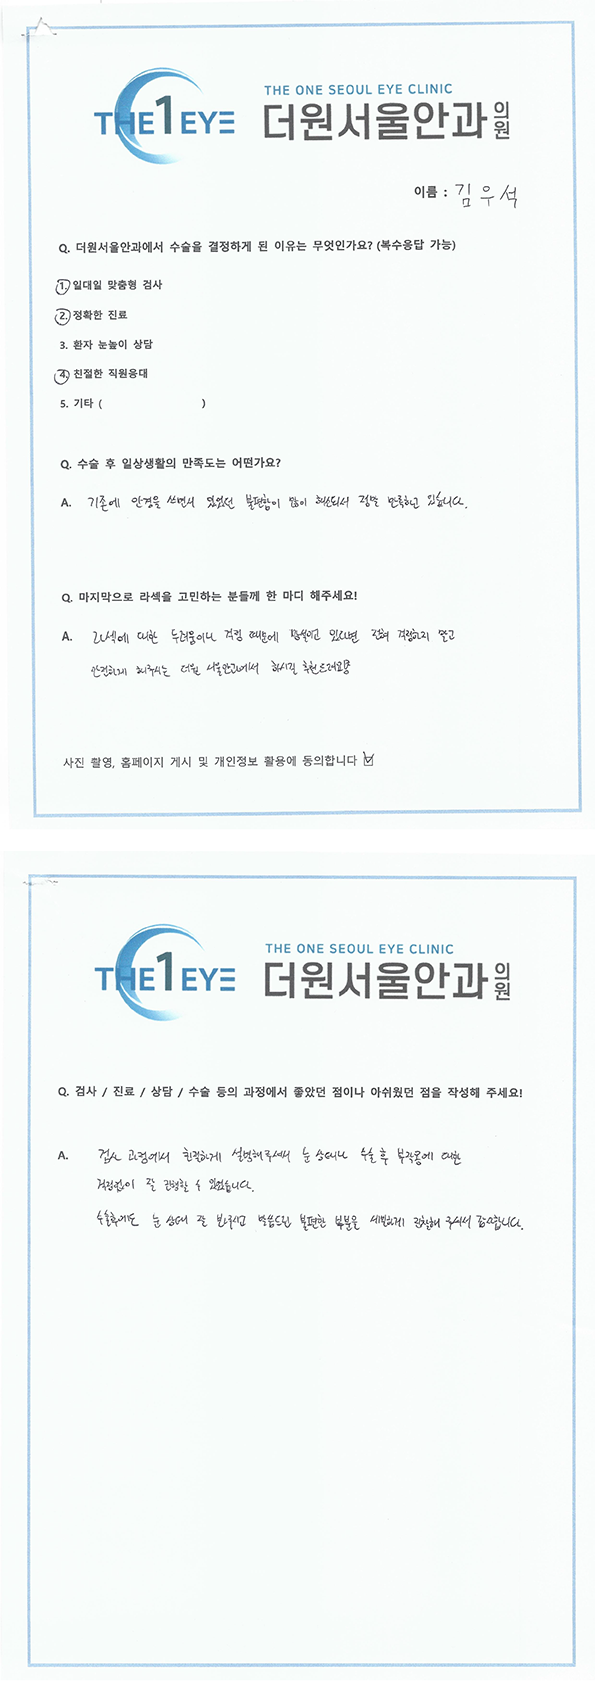 THE 1 EYE
THE ONE SEOUL EYE CLINIC
더원서울안과의원
이름 : 김우석
Q. 더원서울안과에서 수술을 결정하게 된 이유는 무엇인가요? (복수응답 가능)
1. 일대일 맞춤형 검사
2. 정확한 진료
3. 환자 눈높이 상담
4. 친절한 직원응대
5. 기타 ( )
Q. 수술 후 일상생활의 만족도는 어떤가요?
A. 기존에 안경을 쓰면서 있었던 불편함이 많이 해소되서 정말 만족하고 있습니다.
Q. 마지막으로 라섹을 고민하는 분들께 한 마디 해주세요!
A. 라섹에 대한 두려움이나 걱정 때문에 망설이고 있다면 전혀 걱정하지 말고
안전하게 해주시는 더원 서울안과에서 하시길 추천드려요
사진 촬영, 홈페이지 게시 및 개인정보 활용에 동의합니다
THE 1 EYE
THE ONE SEOUL EYE CLINIC
더원서울안과의원
Q. 검사 / 진료 / 상담 / 수술 등의 과정에서 좋았던 점이나 아쉬웠던 점을 작성해 주세요!
A. 검사 과정에서 친절하게 설명해주셔서 눈 상태나 수술 후 부작용에 대한
걱정없이 잘 진행할 수 있었습니다.
수술후에도 눈 상태 잘 봐주시고 말씀드린 불편한 부분을 세밀하게 관찰해 주셔서 감사합니다.